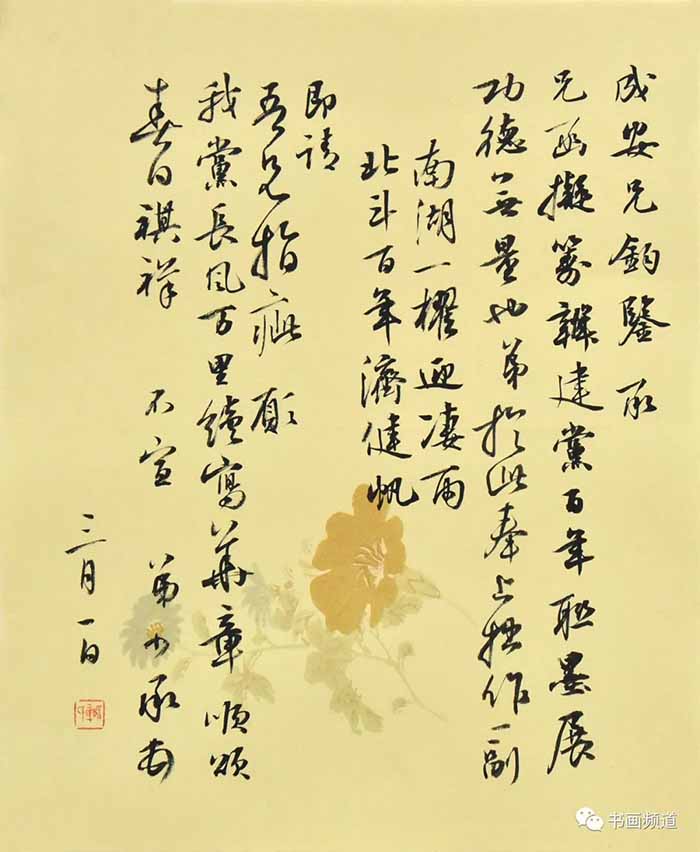 成安兄鈞鑒承
兄函擬籌辦建黨百年聯墨展
功德無量也弟於此奉上拙作一副
南湖一櫂迎淒雨
北斗百年濟健帆
即請
吾兄指疵願
我黨長風万里續寫華章順頌
春日祺祥 不宣 弟少承
三月一日
书画频道